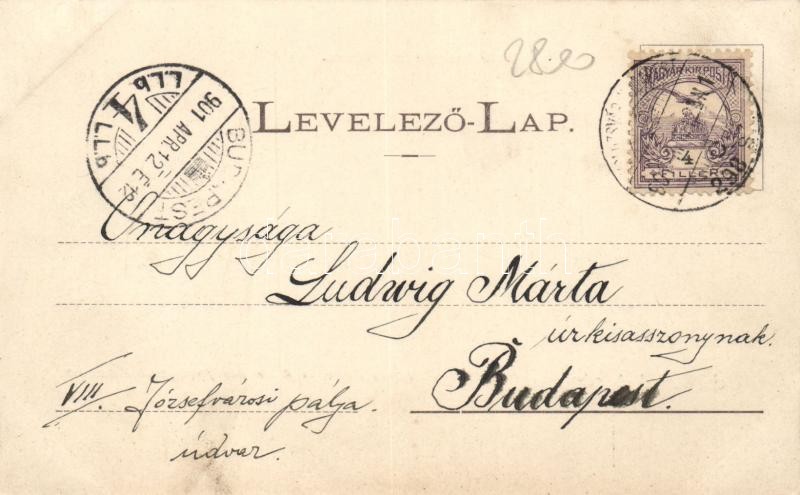 28.20
LEVELEZŐ-LAP.
MAGYAR KIR. POSTA
4
FILLÉR
BUDAPEST
901 APR. 12
Önagysága
Ludwig Márta
úrkisasszonynak.
Budapest.
VIII/ Józsefvárosi pálja
údvar.